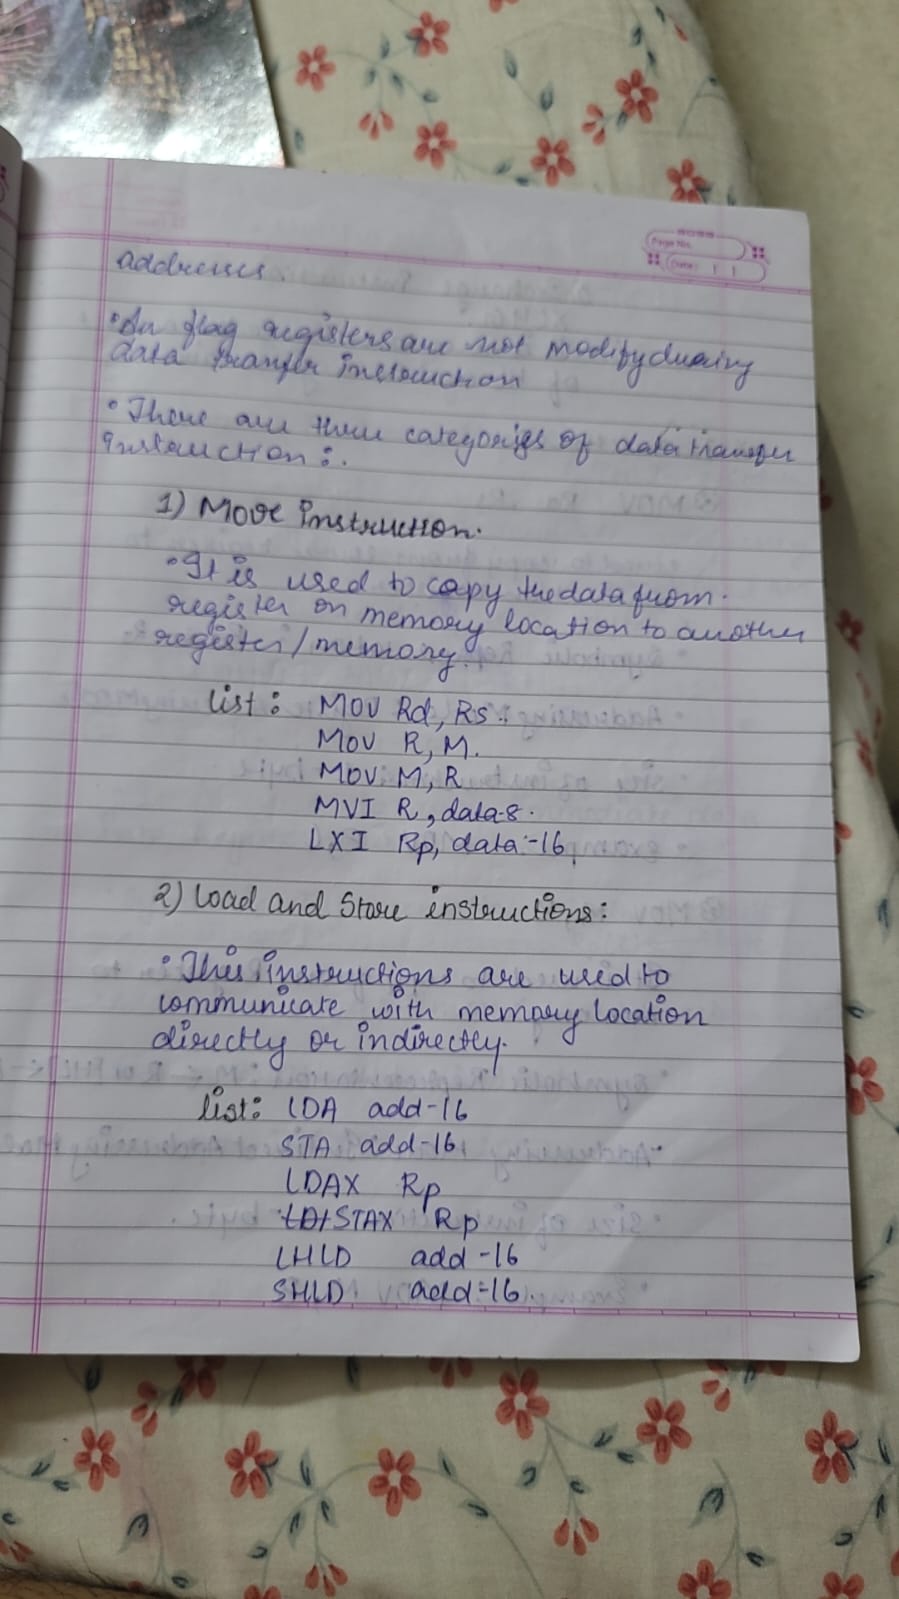 addresses.
Page No.
Date: | |
• An flag registers are not modify during
data transfer instruction
• There are three categories of data transfer
instruction :.
1) Move instruction.
• It is used to copy the data from.
register or memory location to another
register/memory.
list : MOV Rd, Rs.
MOV R, M.
MOV M, R
MVI R, data-8.
LXI Rp, data-16
2) Load and Store instructions :
• This instructions are used to
communicate with memory location
directly or indirectly.
list: LDA add-16
STA add-16
LDAX Rp
STAX Rp
LHLD add-16
SHLD add-16.